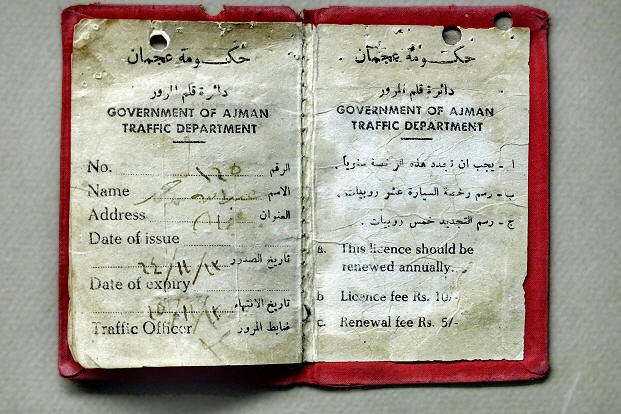 حكومة عجمان
دائرة قلم المرور
GOVERNMENT OF AJMAN
TRAFFIC DEPARTMENT
No. ١٤٥ الرقم
Name الاسم
Address عجمان العنوان
Date of issue
تاريخ الصدور
Date of expiry
تاريخ الانتهاء
Traffic Officer ضابط المرور
حكومة عجمان
دائرة قلم المرور
GOVERNMENT OF AJMAN
TRAFFIC DEPARTMENT
ا - يجب ان تجدد هذه الرخصة سنوياً .
ب - رسم رخصة السيارة عشر روبيات .
ج - رسم التجديد خمس روبيات .
a. This licence should be
renewed annually.
b Licence fee Rs. 10/-
c. Renewal fee Rs. 5/-